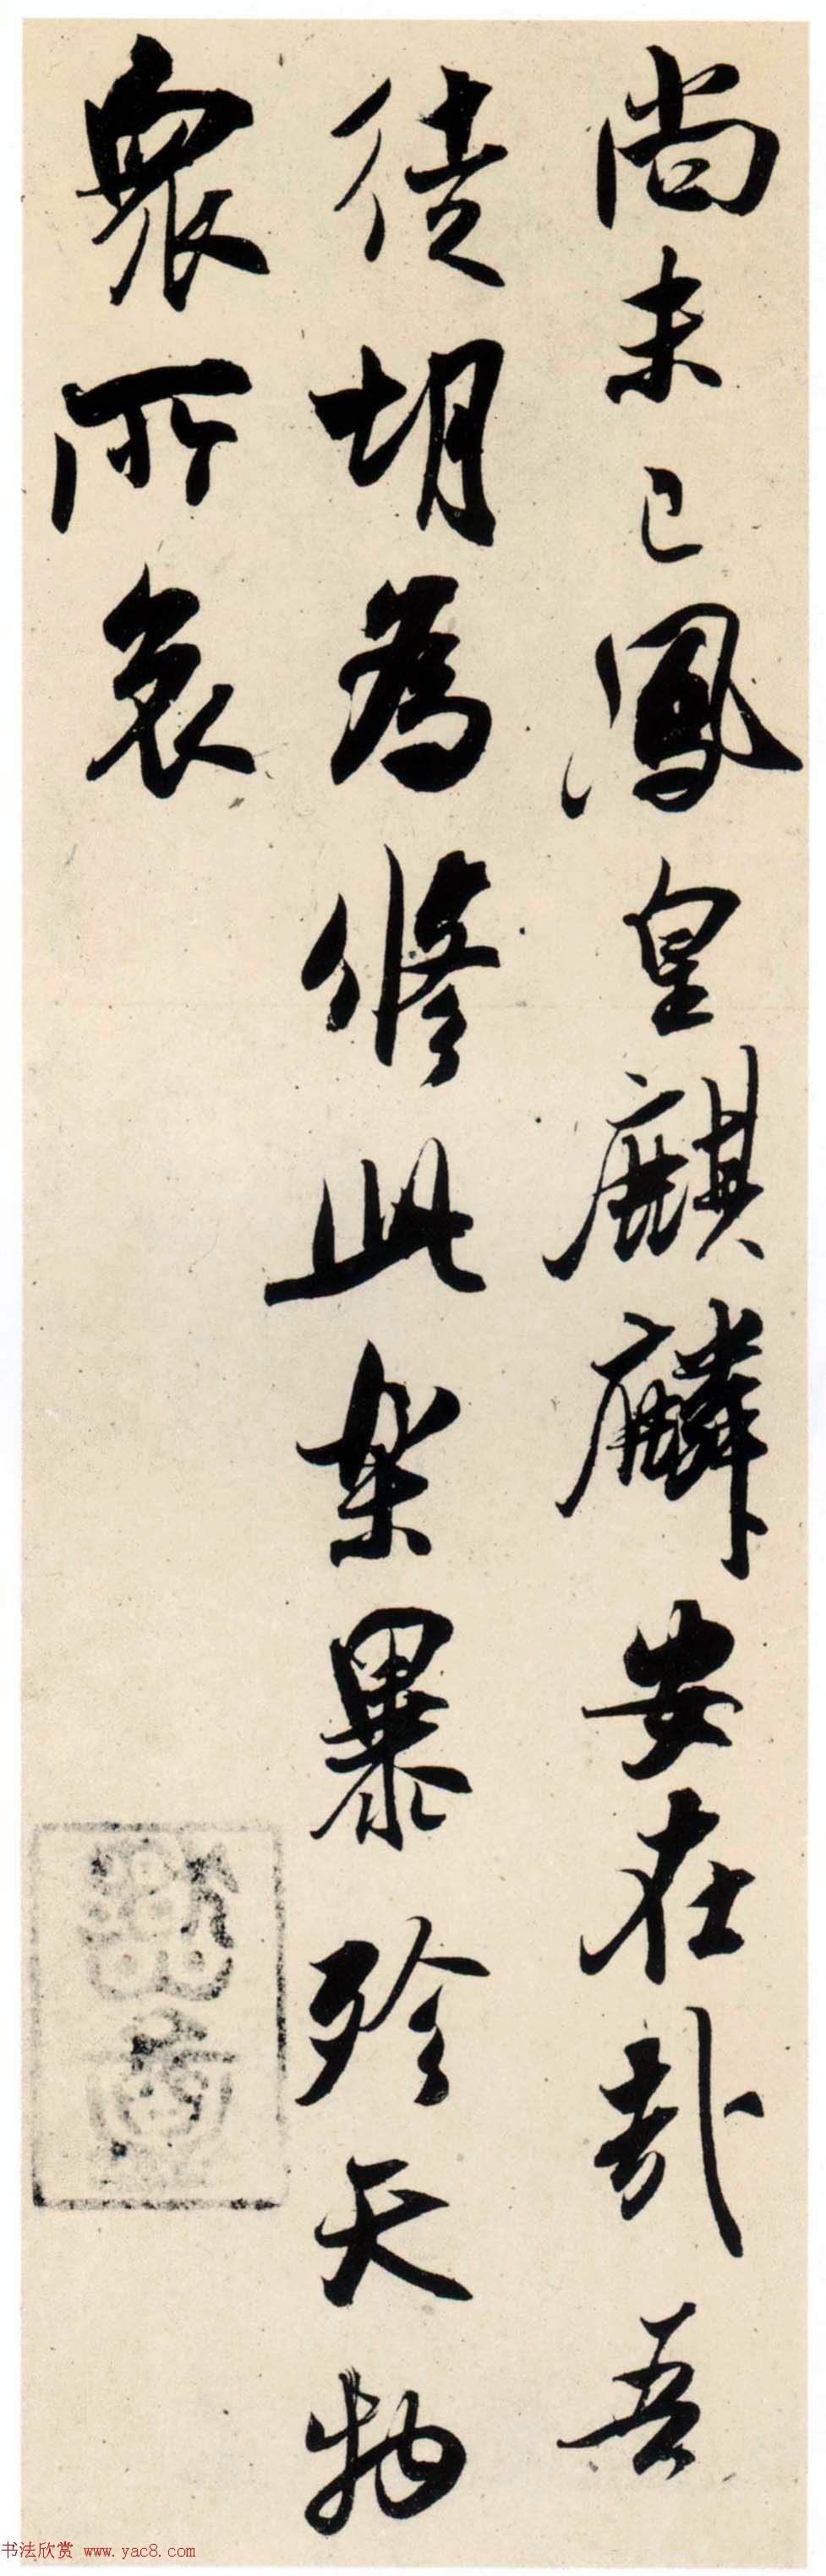 尚未已鳳皇麒麟安在哉吾
徒胡為修此樂暴殄天物
眾所哀
书法欣赏 www.yac8.com